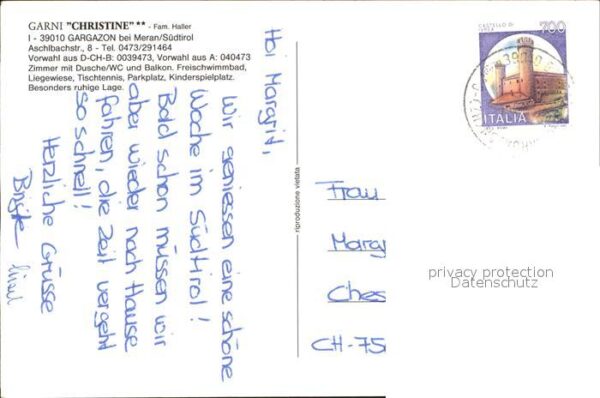 GARNI "CHRISTINE" ** - Fam. Haller
I - 39010 GARGAZON bei Meran/Südtirol
Aschlbachstr., 8 - Tel. 0473/291464
Vorwahl aus D-CH-B: 0039473, Vorwahl aus A: 040473
Zimmer mit Dusche/WC und Balkon. Freischwimmbad,
Liegewiese, Tischtennis, Parkplatz, Kinderspielplatz.
Besonders ruhige Lage.
Hoi Margrit,
Wir geniessen eine schöne
Woche im Südtirol!
Bald schon müssen wir
aber wieder nach Hause
fahren, die Zeit vergeht
so schnell!
Herzliche Grüsse
riproduzione vietata
CASTELLO DI
700
ITALIA
Frau
Marg
Ches
CH-75
privacy protection
Datenschutz